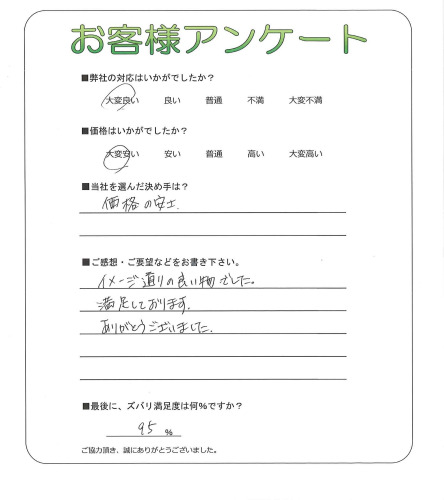 お客様アンケート
■弊社の対応はいかがでしたか？
大変良い 良い 普通 不満 大変不満
■価格はいかがでしたか？
大変安い 安い 普通 高い 大変高い
■当社を選んだ決め手は？
価格の安さ.
■ご感想・ご要望などをお書き下さい。
イメージ通りの良い物でした。
満足しております.
ありがとうございました.
■最後に、ズバリ満足度は何%ですか？
95 %
ご協力頂き、誠にありがとうございました。